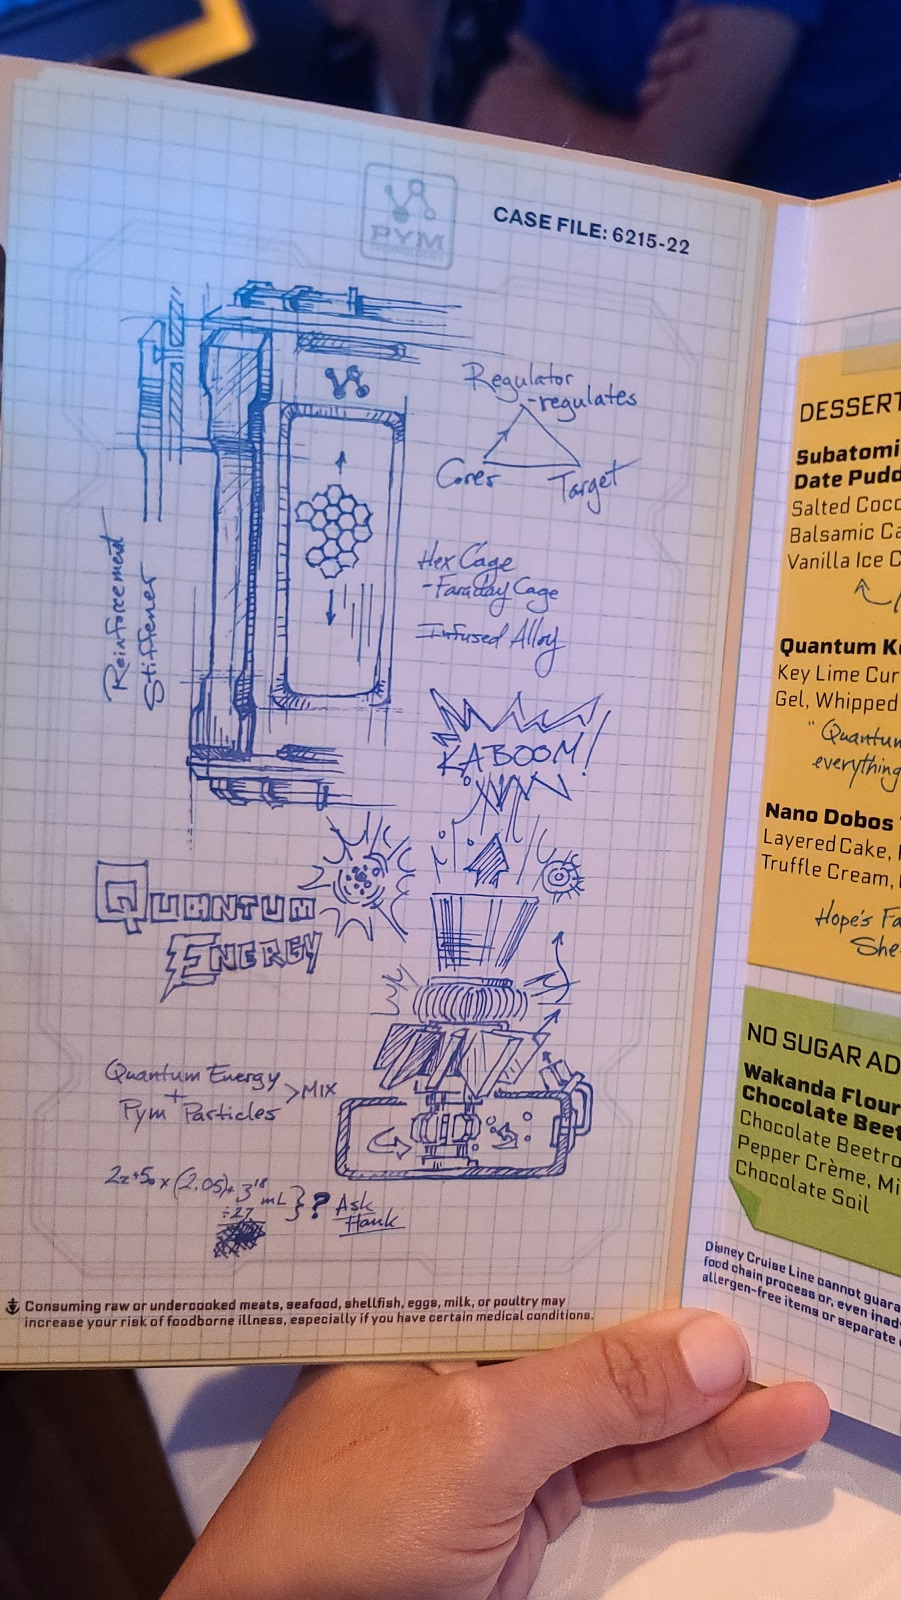 PYM
CASE FILE: 6215-22
Regulator
-regulates
Cores
Target
Reinforcement
Stiffener
Hex Cage
-Faraday Cage
Infused Alloy
KABOOM!
QUANTUM
ENERGY
Quantum Energy
+
Pym Particles
>MIX
mL } ? Ask
Hank
÷27
Consuming raw or undercooked meats, seafood, shellfish, eggs, milk, or poultry may
increase your risk of foodborne illness, especially if you have certain medical conditions.
DESSERT
Subatomi
Date Pudd
Salted Coco
Balsamic Ca
Vanilla Ice C
Quantum K
Key Lime Cur
Gel, Whipped
"Quantum
everything
Nano Dobos
Layered Cake,
Truffle Cream,
Hope's Fa
She
NO SUGAR AD
Wakanda Flour
Chocolate Beet
Chocolate Beetro
Pepper Crème, Mi
Chocolate Soil
Disney Cruise Line cannot guara
food chain process or, even inad
allergen-free items or separate